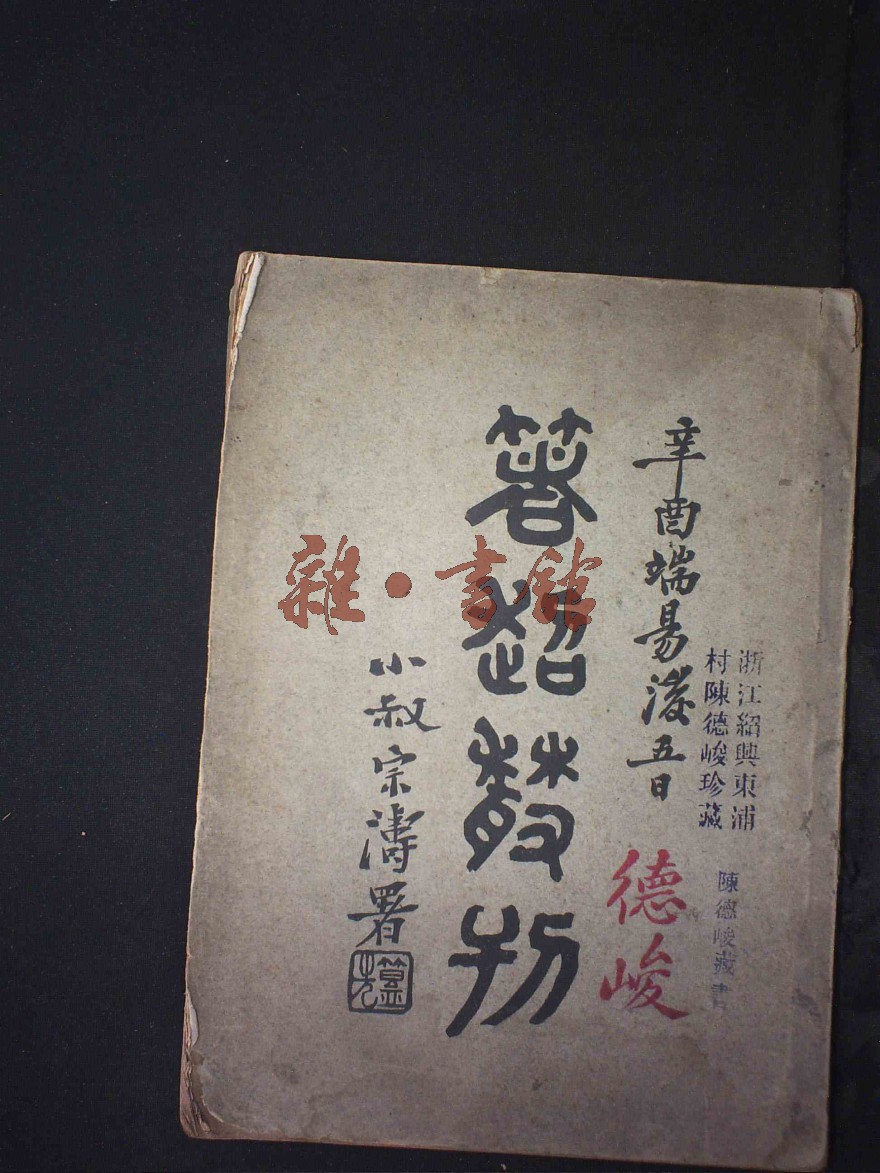 浙江紹興東浦
村陳德峻珍藏
陳德峻藏書
辛酉端昜後五日
德峻
箸超散刊
小叔宗濤署
雜·書館